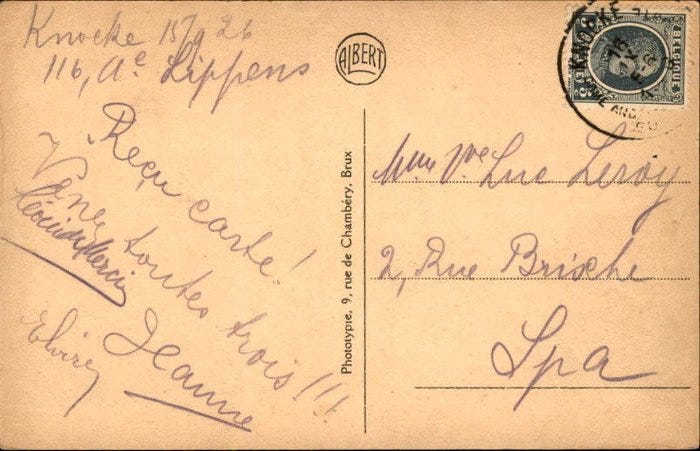 Knocke 15/9 26
116, Ae Lippens
Reçu carte!
Venez toutes trois!!!
Jeanne
Elvire
ALBERT
Phototypie, 9, rue de Chambéry, Brux
KNOCKE
BELGIQUE
Mme Vve Luc Leroy
2, Rue Brixhe
Spa